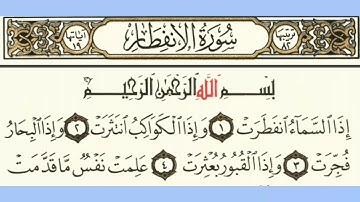 ترتيبها ٨٢ سُورَةُ الِانفِطَارِ آياتها ١٩
بِسْمِ اللَّهِ الرَّحْمَٰنِ الرَّحِيمِ
إِذَا ٱلسَّمَآءُ ٱنفَطَرَتْ ١ وَإِذَا ٱلْكَوَاكِبُ ٱنتَثَرَتْ ٢ وَإِذَا ٱلْبِحَارُ
فُجِّرَتْ ٣ وَإِذَا ٱلْقُبُورُ بُعْثِرَتْ ٤ عَلِمَتْ نَفْسٌ مَّا قَدَّمَتْ